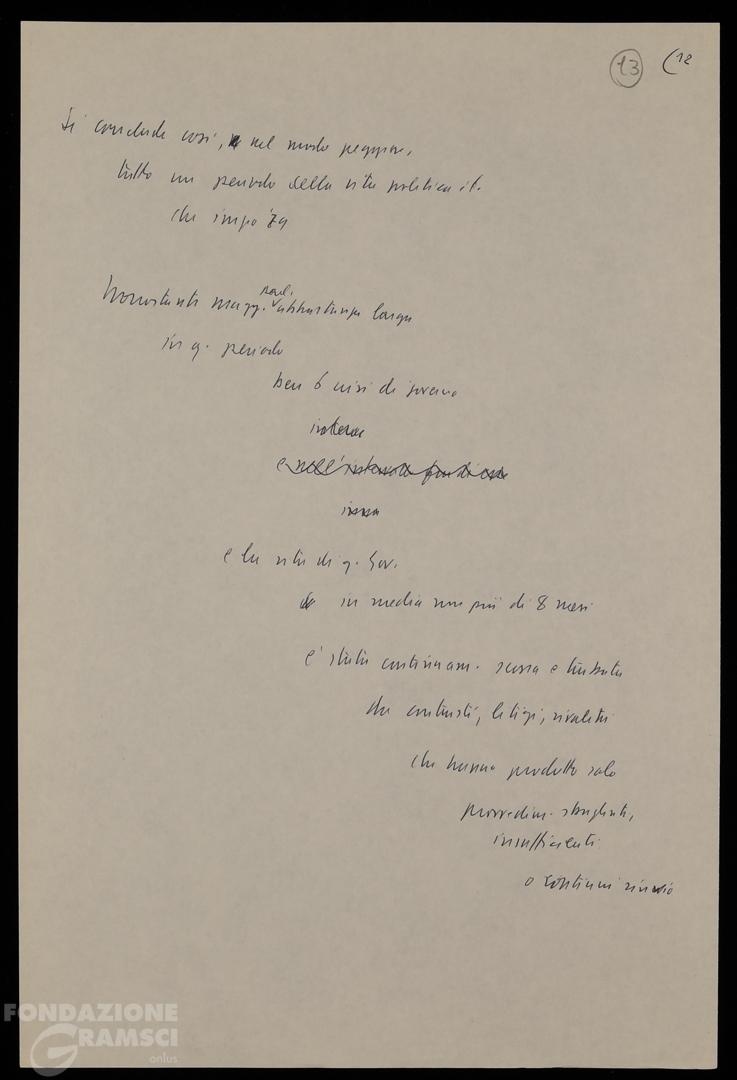 13 (12
Si conclude così, nel modo peggiore,
tutto un periodo della vita politica it.
che
Nonostante magg. abbastanza larga
in q. periodo
ben 6 crisi di governo
intera
e nell'
e la vita di q. Gov.
in media non più di 8 mesi
e' stata continuam. scossa e turbata
da contrasti, litigi, rivalità
che hanno prodotto solo
provvedim. sbagliati,
insufficienti
o continui rinvio
FONDAZIONE
GRAMSCI
onlus